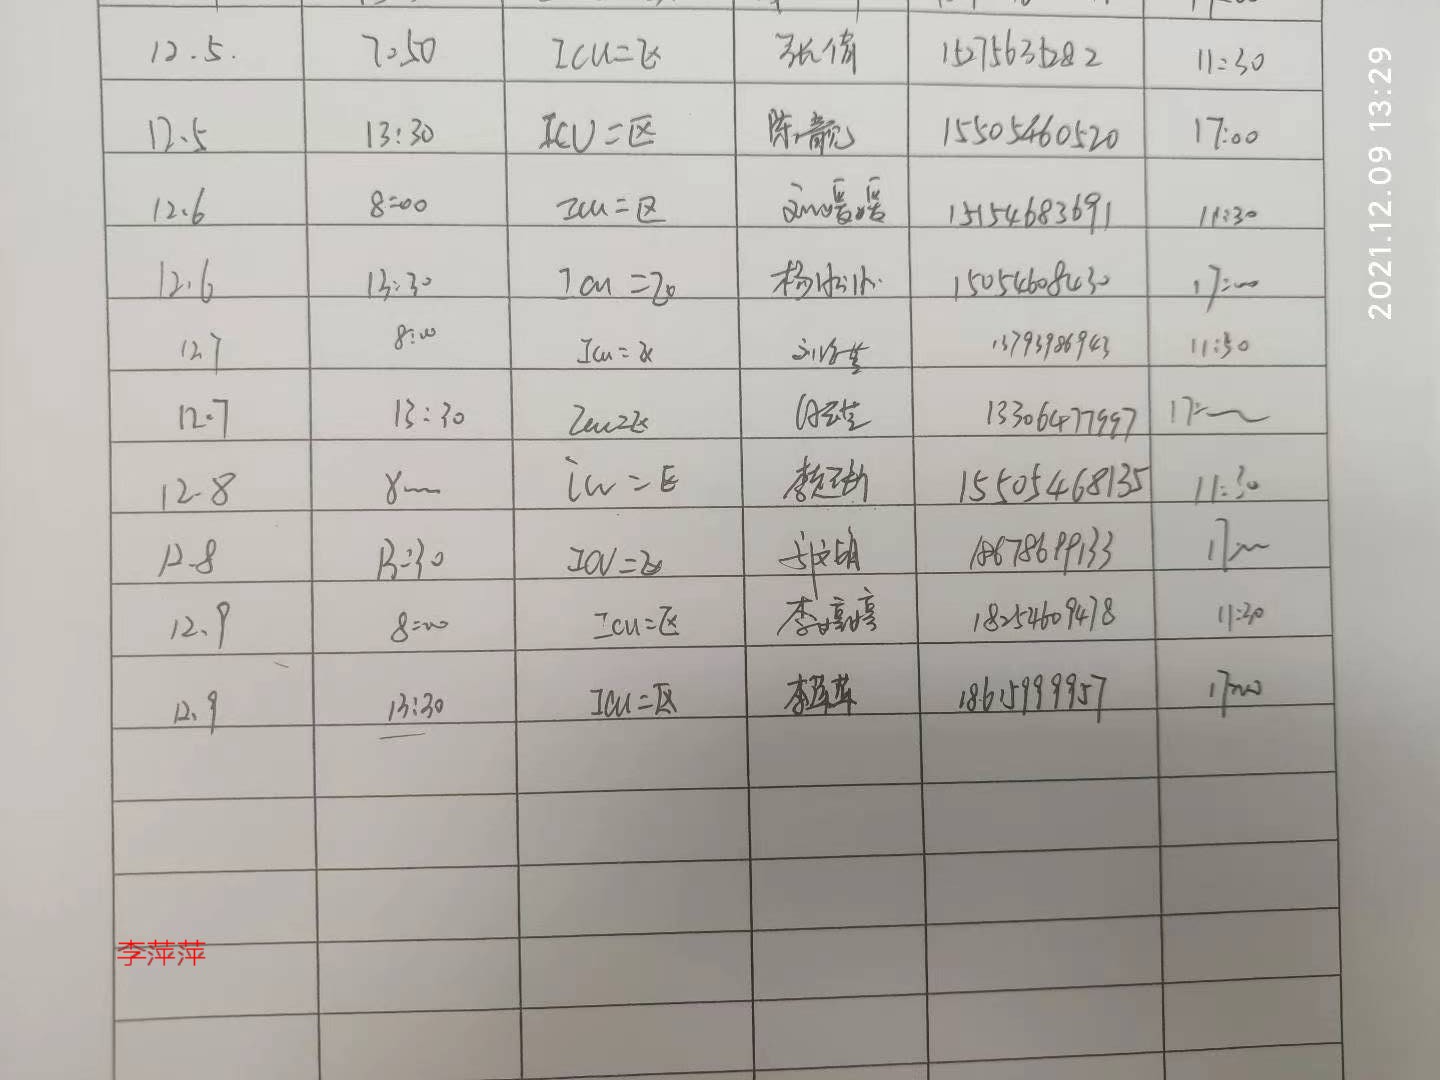 12.5. 7:50 ICU二区 张倩 15275635282 11:30
12.5 13:30 ICU二区 陈靓 15505460520 17:00
12.6 8:00 ICU二区 刘媛媛 15154683691 11:30
12.6 13:30 ICU二区 杨 15054608430 17:00
12.7 8:00 ICU二区 刘 13793986943 11:30
12.7 13:30 ICU二区 13306477997 17:00
12.8 8:00 ICU二区 李 15505468135 11:30
12.8 13:30 ICU二区 18678699133 17:00
12.9 8:00 ICU二区 李婷婷 18254609478 11:30
12.9 13:30 ICU二区 李萍萍 18615999957 17:00
李萍萍
2021.12.09 13:29